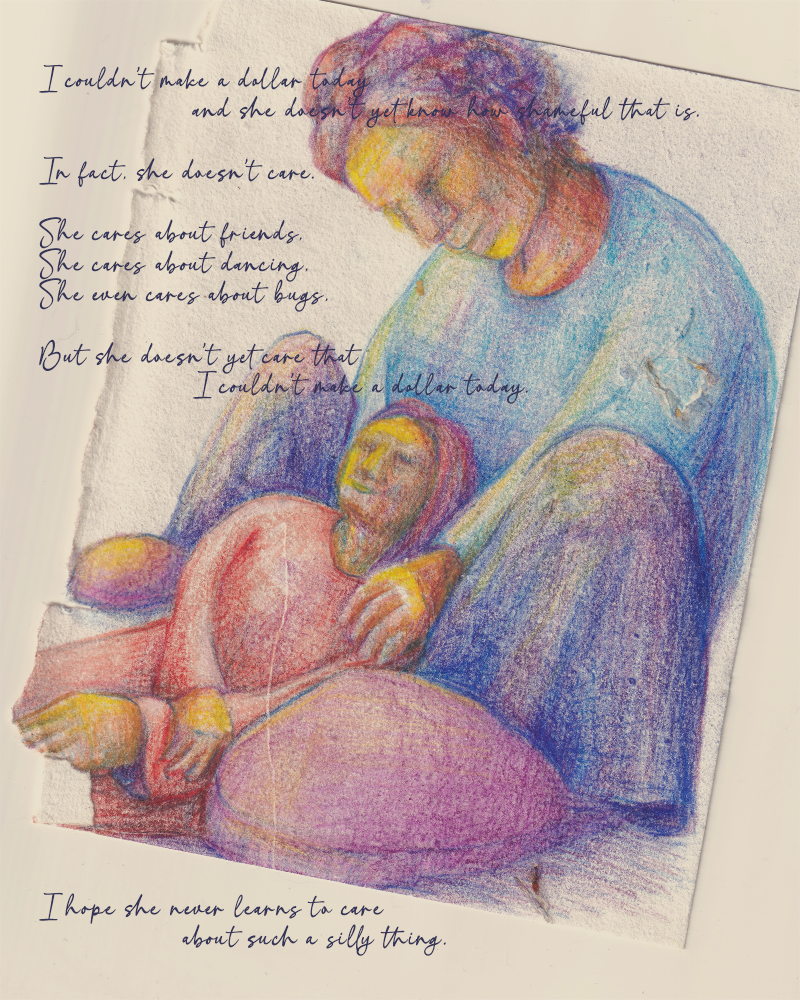 I couldn't make a dollar today
and she doesn't yet know how shameful that is.
In fact, she doesn't care.
She cares about friends.
She cares about dancing.
She even cares about bugs.
But she doesn't yet care that
I couldn't make a dollar today.
I hope she never learns to care
about such a silly thing.